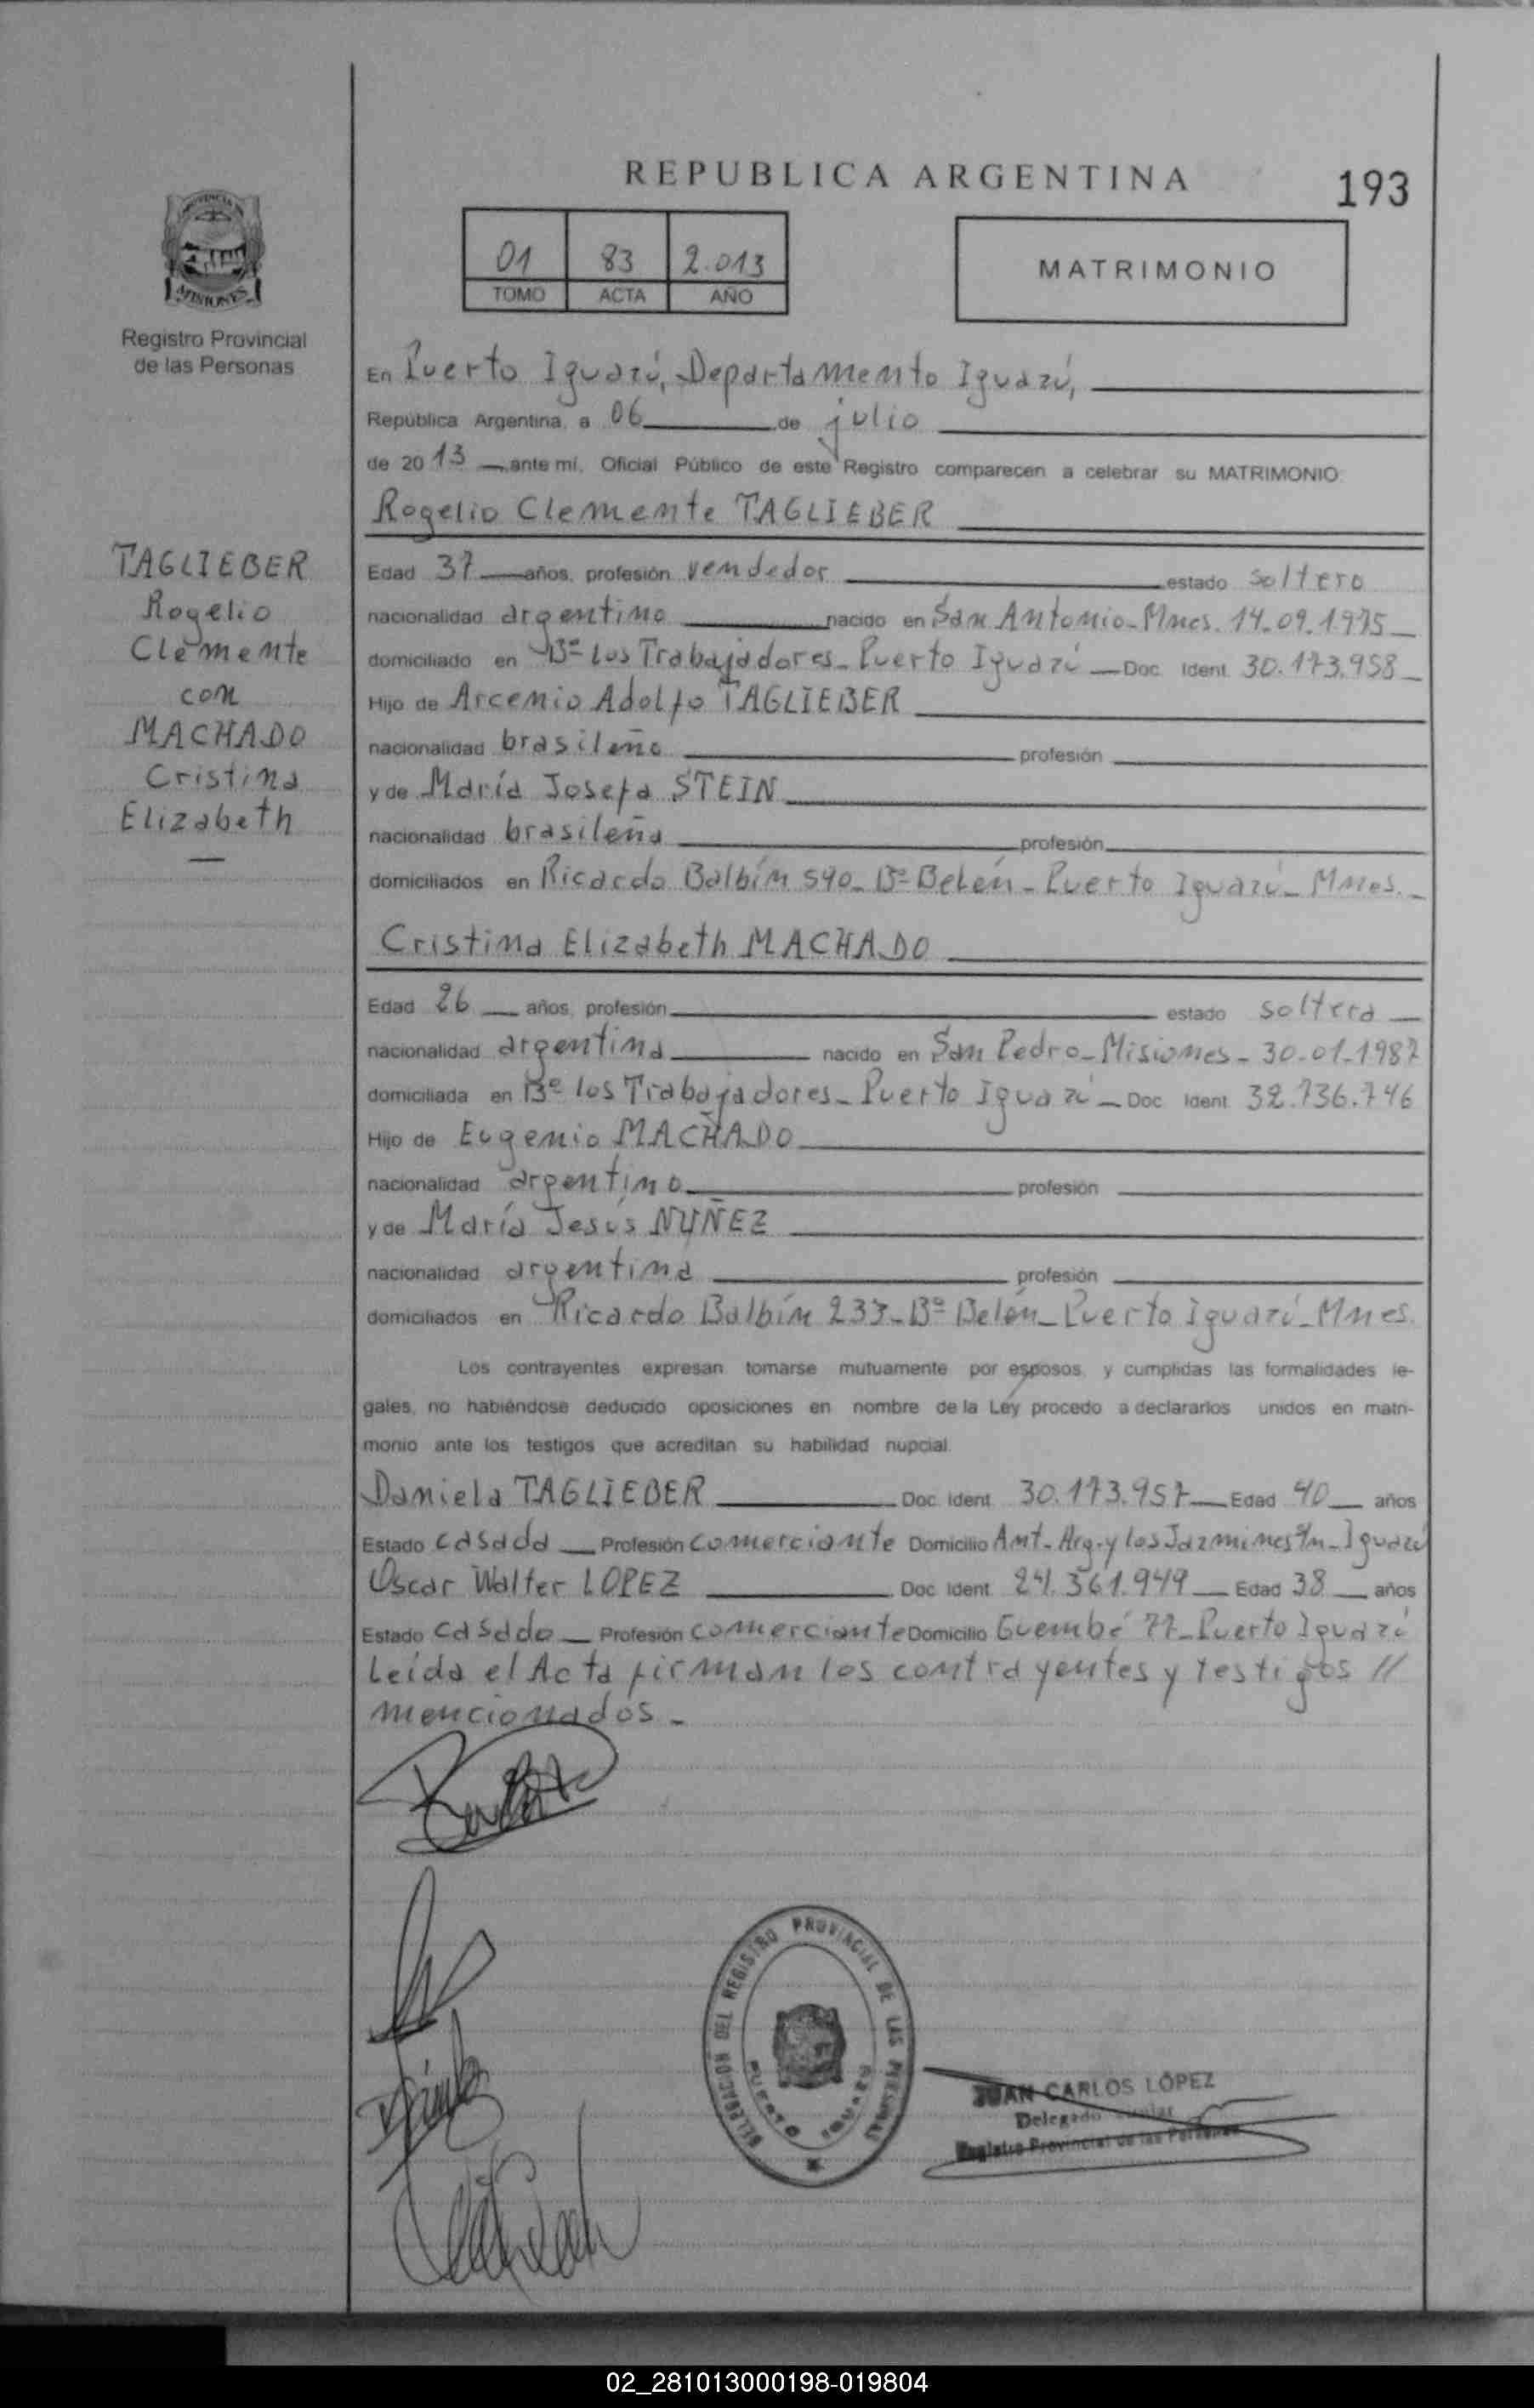 REPUBLICA ARGENTINA
193
PROVINCIA DE
MISIONES
Registro Provincial
de las Personas
01 83 2.013
TOMO ACTA AÑO
MATRIMONIO
En Puerto Iguazú, Departamento Iguazú,
República Argentina, a 06 de julio
de 2013 ante mí, Oficial Público de este Registro comparecen a celebrar su MATRIMONIO:
Rogelio Clemente TAGLIEBER
TAGLIEBER
Rogelio
Clemente
con
MACHADO
Cristina
Elizabeth
Edad 37 años, profesión vendedor estado soltero
nacionalidad argentino nacido en San Antonio-Mnes. 14.09.1975
domiciliado en Bº Los Trabajadores- Puerto Iguazú Doc. Ident. 30.173.958
Hijo de Arcenio Adolfo TAGLIEBER
nacionalidad brasileño profesión
y de María Josefa STEIN
nacionalidad brasileña profesión
domiciliados en Ricardo Balbín 590- Bº Belén- Puerto Iguazú- Mnes.
Cristina Elizabeth MACHADO
Edad 26 años, profesión estado soltera
nacionalidad argentina nacido en San Pedro-Misiones- 30-01-1987
domiciliada en Bº los Trabajadores- Puerto Iguazú Doc. Ident. 32.736.746
Hijo de Eugenio MACHADO
nacionalidad argentino profesión
y de María Jesús NUÑEZ
nacionalidad argentina profesión
domiciliados en Ricardo Balbín 233- Bº Belén- Puerto Iguazú- Mnes.
Los contrayentes expresan tomarse mutuamente por esposos, y cumplidas las formalidades le-
gales, no habiéndose deducido oposiciones en nombre de la Ley procedo a declararlos unidos en matri-
monio ante los testigos que acreditan su habilidad nupcial.
Daniela TAGLIEBER Doc. Ident. 30.173.957 Edad 40 años
Estado casada Profesión comerciante Domicilio Ant. Arg. y los Jazmines s/n- Iguazú
Oscar Walter LOPEZ Doc. Ident. 24.361.949 Edad 38 años
Estado casado Profesión comerciante Domicilio Guembé 77- Puerto Iguazú
Leída el Acta firman los contrayentes y testigos //
mencionados -
DELEGACIÓN DEL REGISTRO PROVINCIAL DE LAS PERSONAS
PUERTO IGUAZÚ
JUAN CARLOS LÓPEZ
Delegado Titular
Registro Provincial de las Personas
02_281013000198-019804